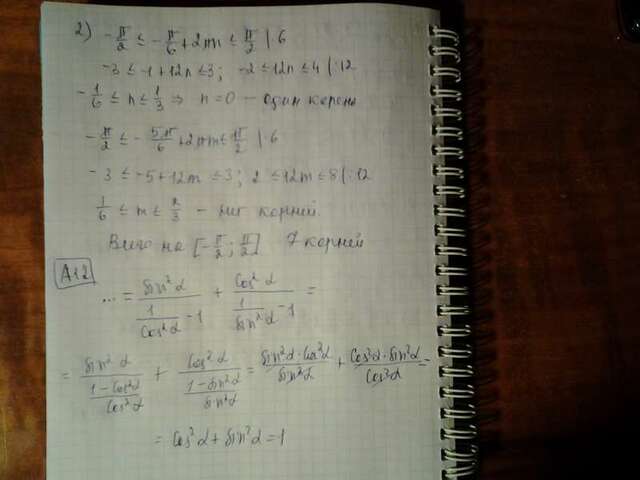 2) -π/2 ≤ -π/6 + 2πn ≤ π/2 | 6
-3 ≤ -1 + 12n ≤ 3; -2 ≤ 12n ≤ 4 | :12
-1/6 ≤ n ≤ 1/3 ⇒ n = 0 – один корень
-π/2 ≤ -5π/6 + 2πm ≤ π/2 | 6
-3 ≤ -5 + 12m ≤ 3; 2 ≤ 12m ≤ 8 | :12
1/6 ≤ m ≤ 2/3 – нет корней.
Всего на [-π/2; π/2] 7 корней
A12
... = sin²α/(1/cos²α - 1) + cos²α/(1/sin²α - 1) =
= sin²α/((1-cos²α)/cos²α) + cos²α/((1-sin²α)/sin²α) = sin²α·cos²α/sin²α + cos²α·sin²α/cos²α =
= cos²α + sin²α = 1